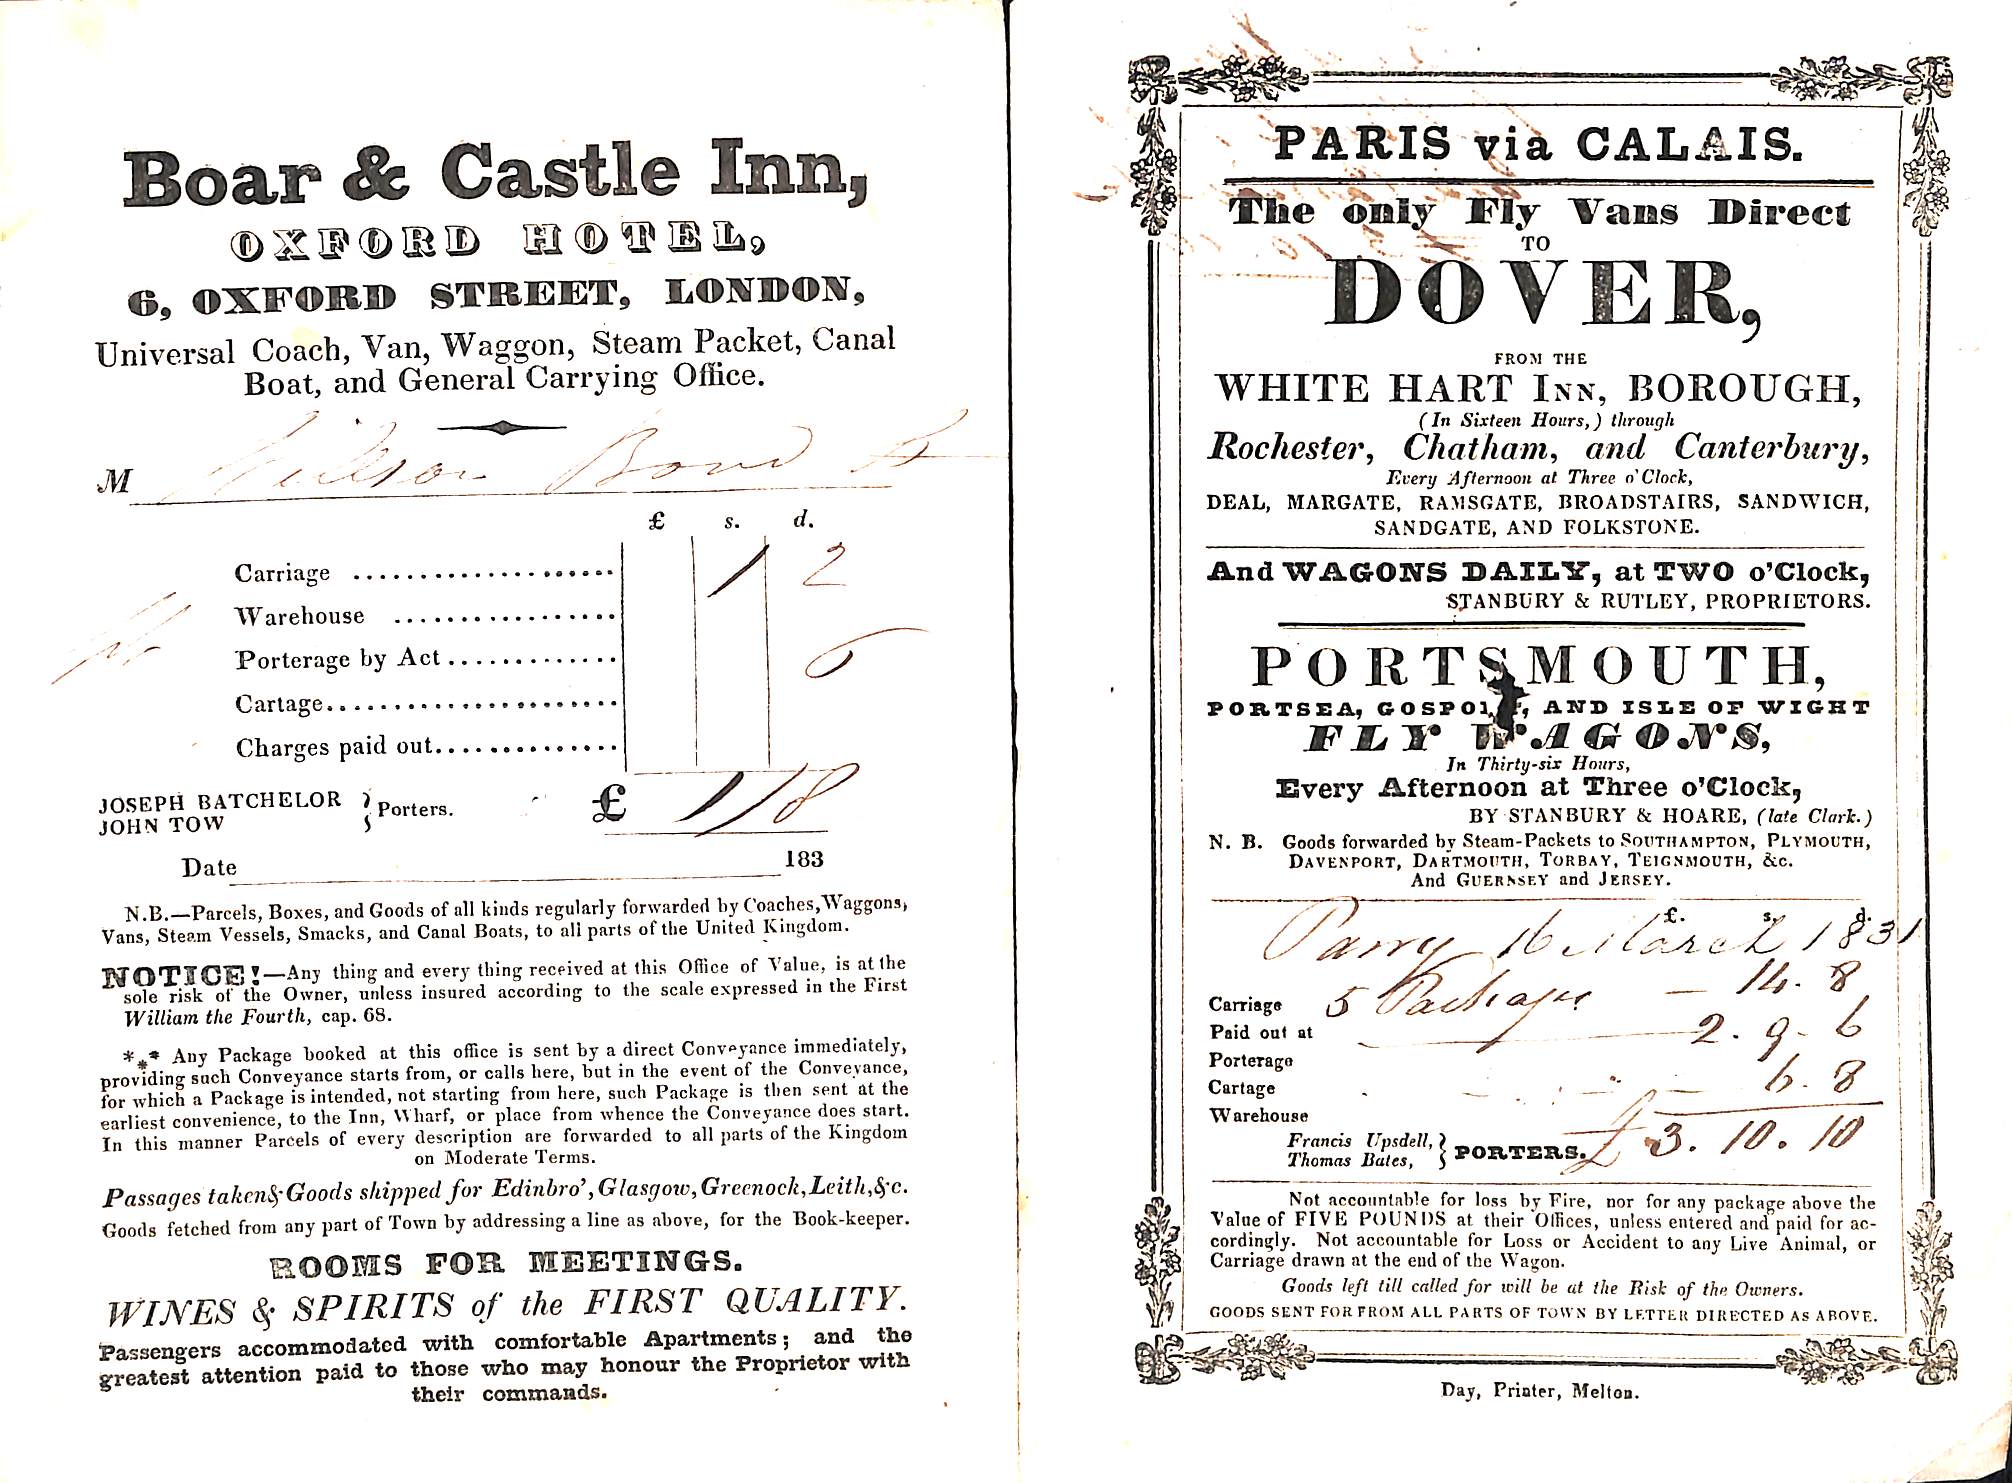 Boar & Castle Inn,
OXFORD HOTEL,
6, OXFORD STREET, LONDON,
Universal Coach, Van, Waggon, Steam Packet, Canal
Boat, and General Carrying Office.
M Wilson Bond St
£ s. d.
Carriage 1 2
Warehouse
Porterage by Act 6
Cartage
Charges paid out
JOSEPH BATCHELOR
JOHN TOW
} Porters. £ 1/8
Date 183
N.B.—Parcels, Boxes, and Goods of all kinds regularly forwarded by Coaches, Waggons,
Vans, Steam Vessels, Smacks, and Canal Boats, to all parts of the United Kingdom.
NOTICE!—Any thing and every thing received at this Office of Value, is at the
sole risk of the Owner, unless insured according to the scale expressed in the First
William the Fourth, cap. 68.
*** Any Package booked at this office is sent by a direct Conveyance immediately,
providing such Conveyance starts from, or calls here, but in the event of the Conveyance,
for which a Package is intended, not starting from here, such Package is then sent at the
earliest convenience, to the Inn, Wharf, or place from whence the Conveyance does start.
In this manner Parcels of every description are forwarded to all parts of the Kingdom
on Moderate Terms.
Passages taken & Goods shipped for Edinbro', Glasgow, Greenock, Leith, &c.
Goods fetched from any part of Town by addressing a line as above, for the Book-keeper.
ROOMS FOR MEETINGS.
WINES & SPIRITS of the FIRST QUALITY.
Passengers accommodated with comfortable Apartments; and the
greatest attention paid to those who may honour the Proprietor with
their commands.
PARIS via CALAIS.
The only Fly Vans Direct
TO
DOVER,
FROM THE
WHITE HART INN, BOROUGH,
(In Sixteen Hours,) through
Rochester, Chatham, and Canterbury,
Every Afternoon at Three o'Clock,
DEAL, MARGATE, RAMSGATE, BROADSTAIRS, SANDWICH,
SANDGATE, AND FOLKSTONE.
And WAGONS DAILY, at TWO o'Clock,
STANBURY & RUTLEY, PROPRIETORS.
PORTSMOUTH,
PORTSEA, GOSPORT, AND ISLE OF WIGHT
FLY WAGONS,
In Thirty-six Hours,
Every Afternoon at Three o'Clock,
BY STANBURY & HOARE, (late Clark.)
N. B. Goods forwarded by Steam-Packets to SOUTHAMPTON, PLYMOUTH,
DAVENPORT, DARTMOUTH, TORBAY, TEIGNMOUTH, &c.
And GUERNSEY and JERSEY.
£. s. d.
Parry 16 March 1831
Carriage 5 Packages — 14. 8
Paid out at 2. 9 - 6
Porterage
Cartage 6. 8
Warehouse
Francis Upsdell,
Thomas Bates,
} PORTERS. £ 3. 10. 10
Not accountable for loss by Fire, nor for any package above the
Value of FIVE POUNDS at their Offices, unless entered and paid for ac-
cordingly. Not accountable for Loss or Accident to any Live Animal, or
Carriage drawn at the end of the Wagon.
Goods left till called for will be at the Risk of the Owners.
GOODS SENT FOR FROM ALL PARTS OF TOWN BY LETTER DIRECTED AS ABOVE.
Day, Printer, Melton.